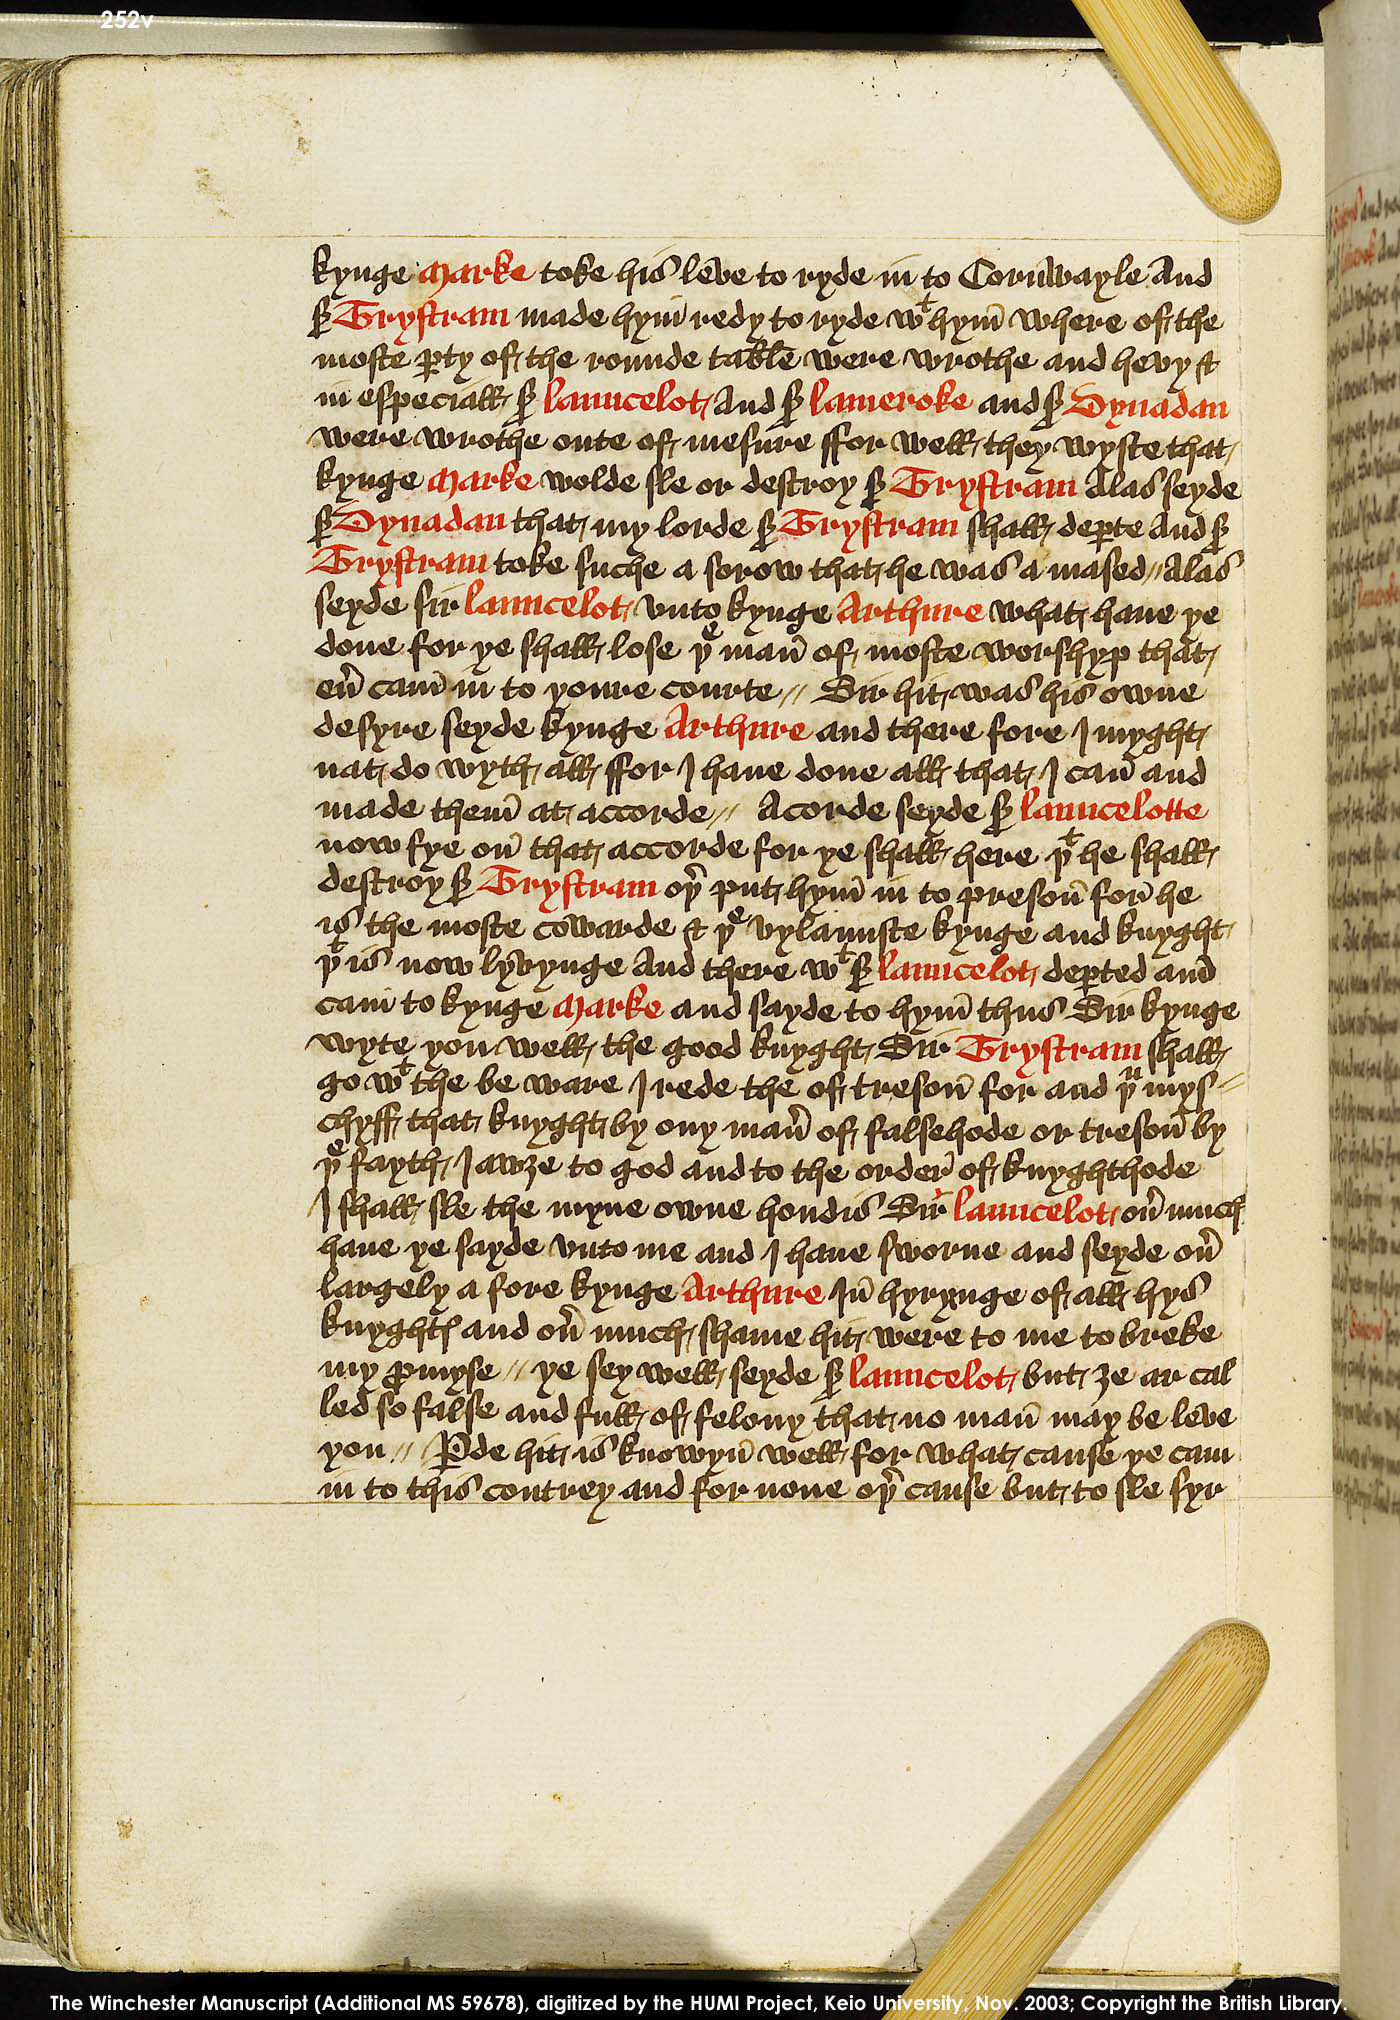 252v
kynge Marke toke his leve to ryde in to Cornwayle And
sr Trystram made hym redy to ryde wt hym where of the
moste pty of the rounde table were wrothe and hevy &
in especiall sr launcelot And sr lameroke and sr Dynadan
were wrothe oute of mesure ffor well they wyste that
kynge Marke wolde sle or destroy sr Trystram Alas seyde
sr Dynadan that my lorde sr Trystram shall depte And sr
Trystram toke suche a sorow that he was a mased // Alas
seyde sir launcelot vnto kynge Arthure what haue ye
done for ye shall lose þe man of moste worshyp that
eủ cam in to youre courte // Sir hit was his owne
desyre seyde kynge Arthure and there fore I myght
nat do wyth all ffor I haue done all that I can and
made them at accorde // Acorde seyde sr launcelotte
now fye on that accorde for ye shall here þt he shall
destroy sr Trystram oþ̉ put hym in to preson for he
is the moste cowarde & þe vylaunste kynge and knyght
þt is now lyvynge And there wt sr launcelot depted and
cam to kynge Marke and sayde to hym thus Sir kynge
wyte you well the good knyght Sir Trystram shall
go wt the be ware I rede the of treson for and þu mys=
chyff that knyght by ony man̉ of falsehode or treson by
þe fayth I awȝe to god and to the order of knyghthode
I shall sle the myne owne hondis Sir launcelot oủ much
haue ye sayde vnto me and I haue sworne and seyde oủ
largely a fore kynge Arthure In hyrynge of all hys
knyghtꝭ and oủ much shame hit were to me to breke
my ꝓmyse // ye sey well seyde sr launcelot but ȝe ar cal
led so false and full of felony that no man may be leve
you // Pde hit is knowyn well for what cause ye cam
in to this contrey and for none oþ̉ cause but to sle syr
The Winchester Manuscript (Additional MS 59678), digitized by the HUMI Project, Keio University, Nov. 2003; Copyright the British Library.